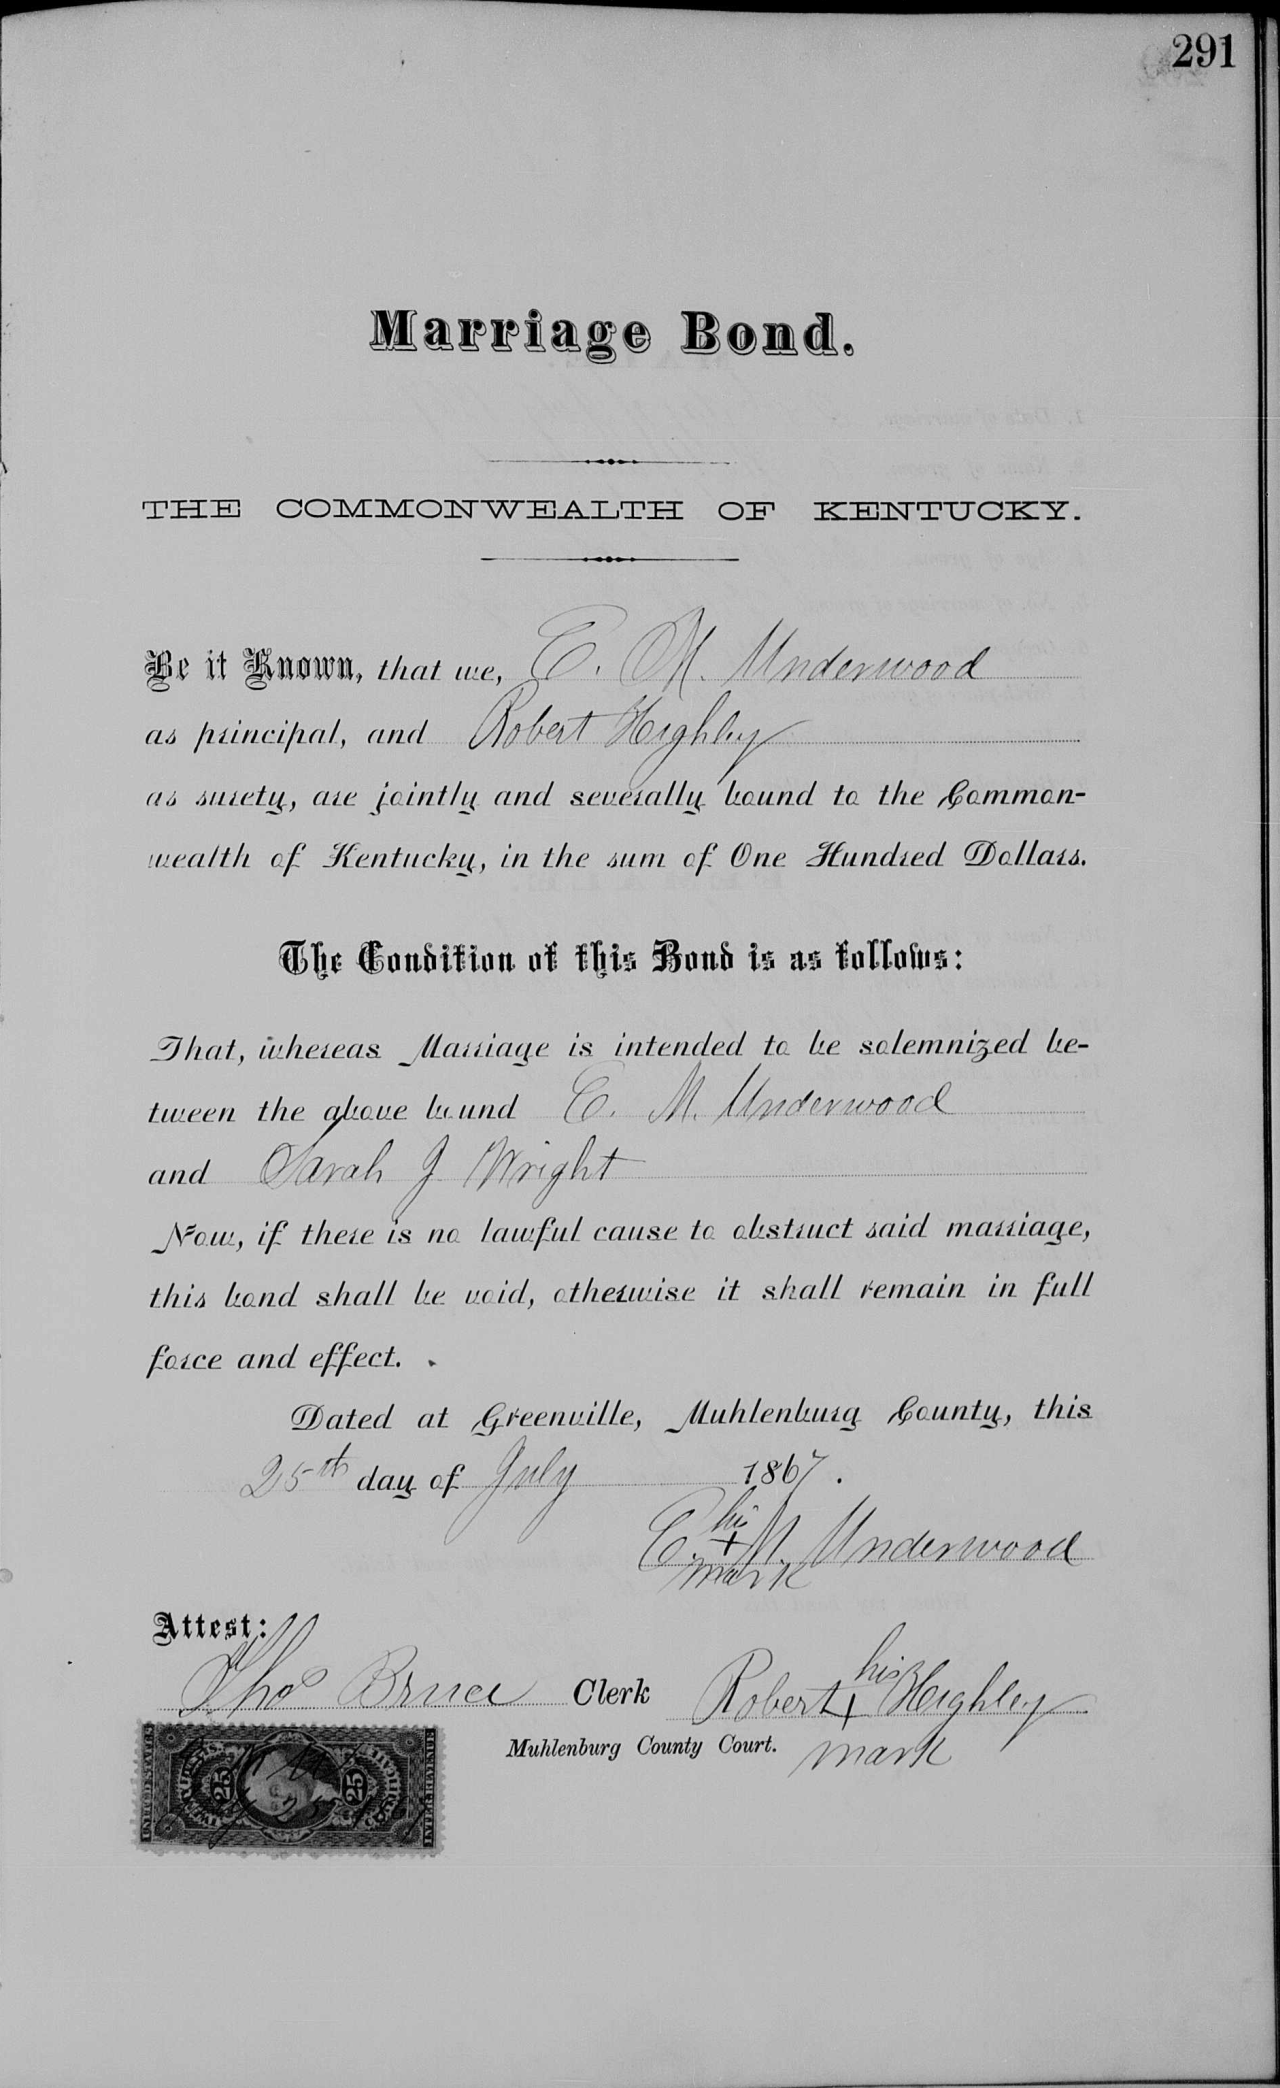 291
Marriage Bond.
THE COMMONWEALTH OF KENTUCKY.
Be it Known, that we, E. M. Underwood
as principal, and Robert Heghley
as surety, are jointly and severally bound to the Common-
wealth of Kentucky, in the sum of One Hundred Dollars.
The Condition of this Bond is as follows:
That, whereas Marriage is intended to be solemnized be-
tween the above bound E. M. Underwood
and Sarah J. Wright
Now, if there is no lawful cause to obstruct said marriage,
this bond shall be void, otherwise it shall remain in full
force and effect.
Dated at Greenville, Muhlenburg County, this
25th day of July 1867.
his
E. + M. Underwood
mark
Attest:
his
Thos Bruce Clerk Robert + Heghley
Muhlenburg County Court. mark
25 25